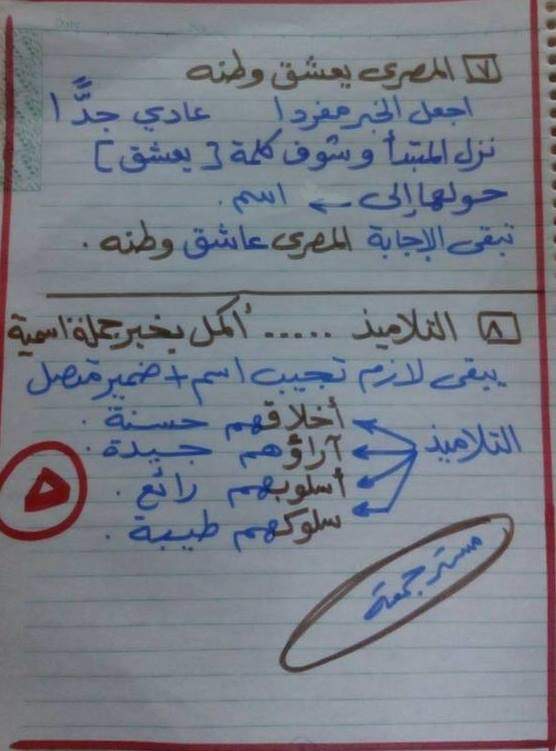 ٧ المصرى يعشق وطنه
اجعل الخبر مفردا عادي جدًّا
نزل المبتدأ وشوف كلمة [يعشق]
حولها إلى ← اسم .
تبقى الإجابة المصرى عاشق وطنه .
٨ التلاميذ ..... أكمل بخبر جملة اسمية
يبقى لازم تجيب اسم + ضمير متصل
أخلاقهم حسنة .
آراؤهم جيدة .
التلاميذ
أسلوبهم رائع .
سلوكهم طيبة .
٥
مستر جمعة